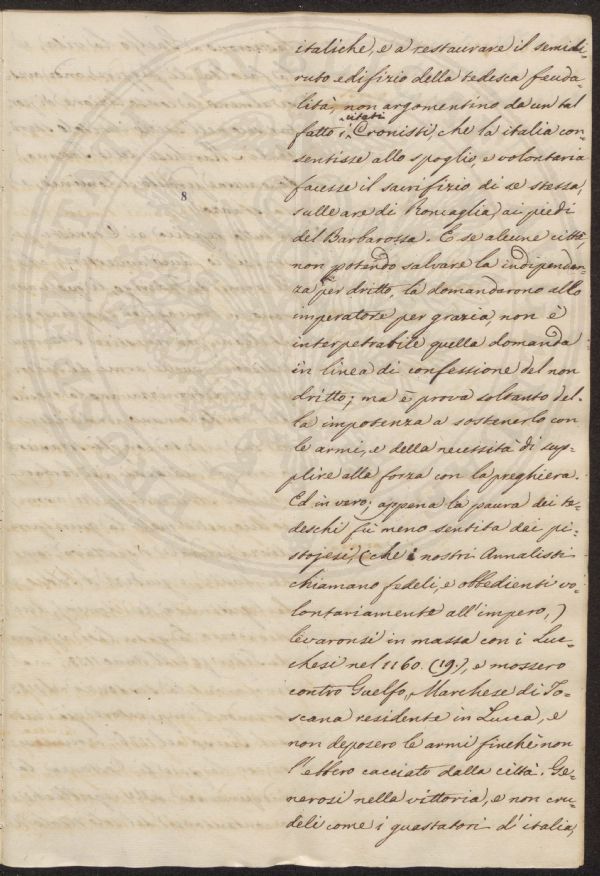 italiche, e a restaurare il semidi-
ruto edifizio della tedesca feuda-
lità, non argomentino da un tal
fatto i citati Cronisti, che la italia con-
sentisse allo spoglio, e volontaria
facesse il sacrifizio di se stessa,
8
sulle are di Roncaglia, ai piedi
del Barbarossa. E se alcune città,
non potendo salvare la indipenden-
za per dritto, la domandarono allo
imperatore per grazia, non è
interpetrabile quella domanda
in linea di confessione del non
dritto; ma è prova soltanto del-
la impotenza a sostenerlo con
le armi, e della necessità di sup-
plire alla forza con la preghiera.
Ed in vero; appena la paura dei te-
deschi fù meno sentita dai pi-
stojesi, (che i nostri Annalisti
chiamano fedeli, e obbedienti vo-
lontariamente all'impero,)
levaronsi in massa con i Luc-
chesi nel 1160. (19.), e mossero
contro Guelfo, Marchese di To-
scana residente in Lucca, e
non deposero le armi finchè non
l'ebbero cacciato dalla città. Ge-
nerosi nella vittoria, e non cru-
deli come i guastatori d'italia,